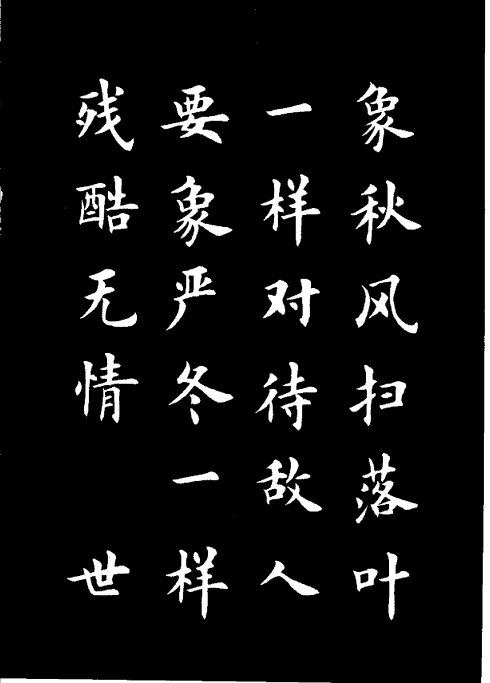 象秋风扫落叶
一样对待敌人
要象严冬一样
残酷无情 世